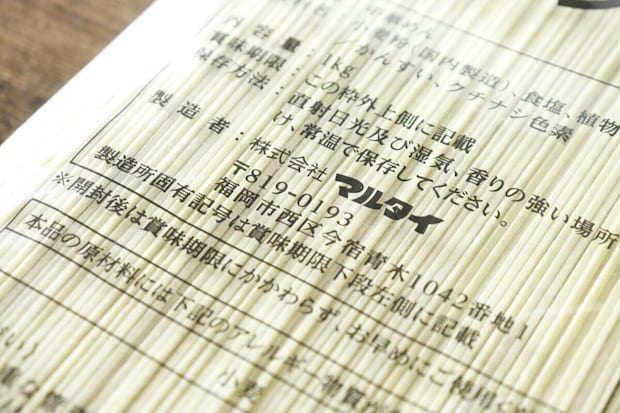 中華めん
小麦粉（国内製造）、食塩、植物
かんすい、クチナシ色素
内容量：1kg
賞味期限：この枠外上側に記載
保存方法：直射日光及び湿気、香りの強い場所
け、常温で保存してください。
製造者：株式会社マルタイ
〒819-0193
福岡市西区今宿青木1042番地1
製造所固有記号は賞味期限下段左側に記載
※開封後は賞味期限にかかわらず、お早めにご使用く
本品の原材料には下記のアレルギー物質が
小麦